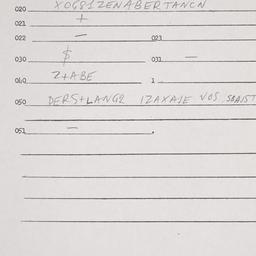 020 XOG81ZENABERTANCN
021 +
022 — 023
030 $ 031 —
040 Z+ABE 1
050 DERS+LANG2 IZAXAJE VOS
051 — .